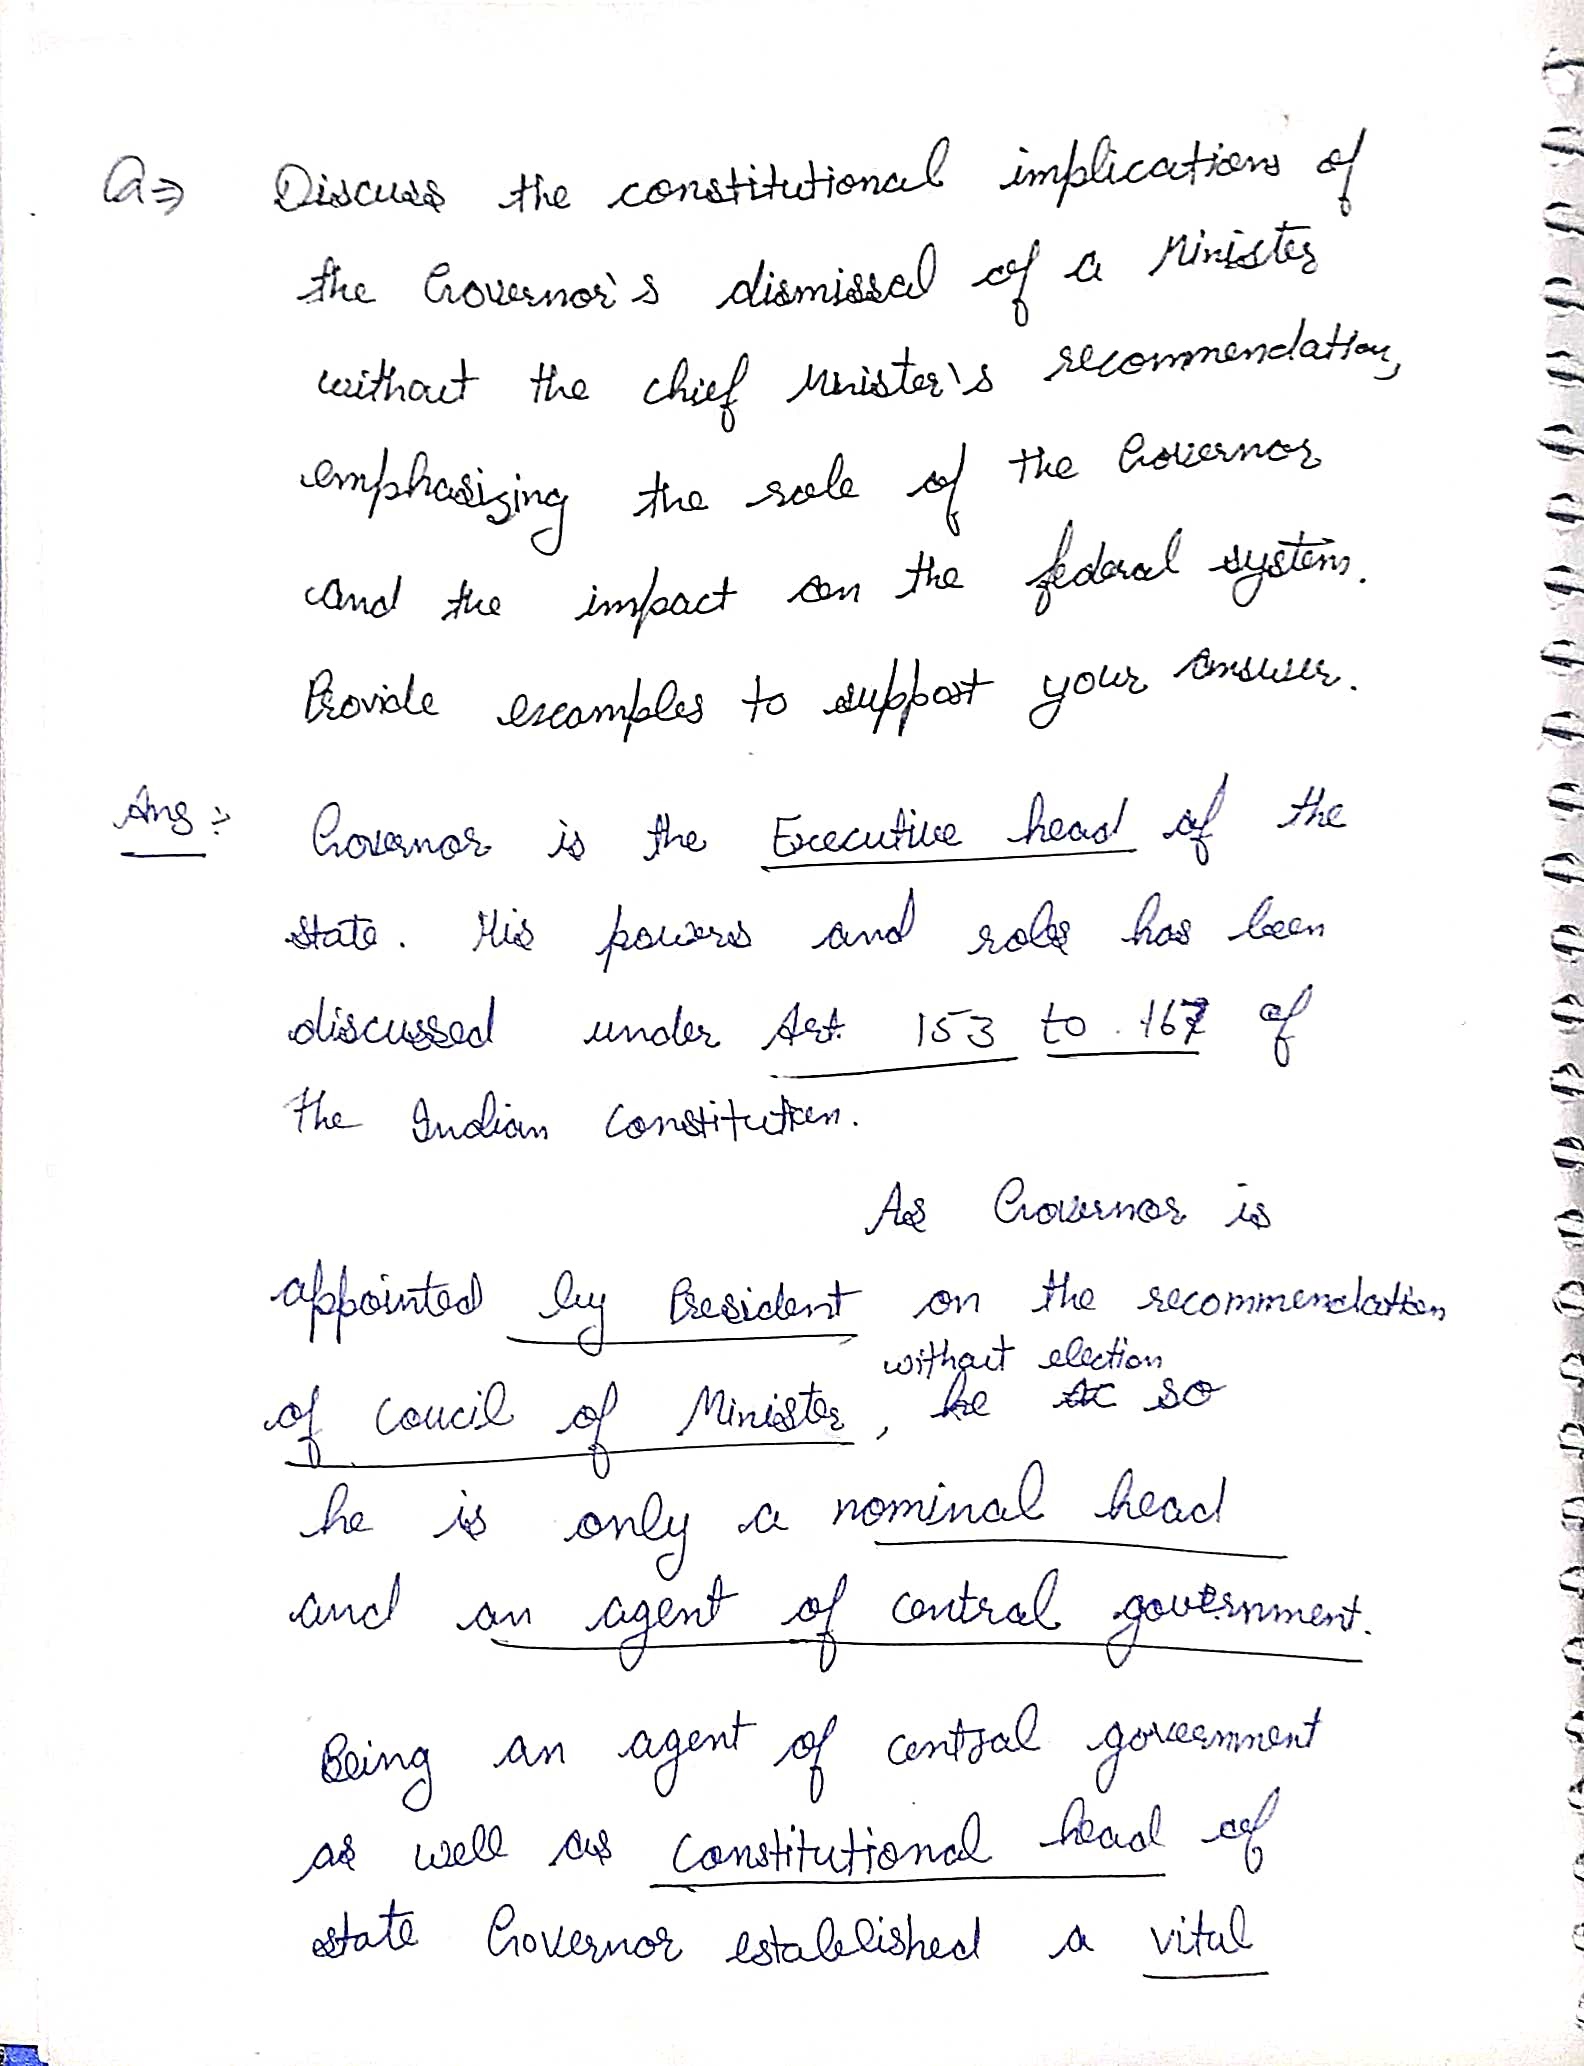 Q⇒ Discuss the constitutional implications of
the Governor's dismissal of a Minister
without the chief Minister's recommendation,
emphasizing the role of the Governor
and the impact on the federal system.
Provide examples to support your answer.
Ans:- Governor is the Executive head of the
state. His powers and roles has been
discussed under Art. 153 to 167 of
the Indian Constitution.
As Governor is
appointed by President on the recommendation
without election
of Coucil of Minister, he so
he is only a nominal head
and an agent of central government.
Being an agent of central government
as well as constitutional head of
state Governor established a vital